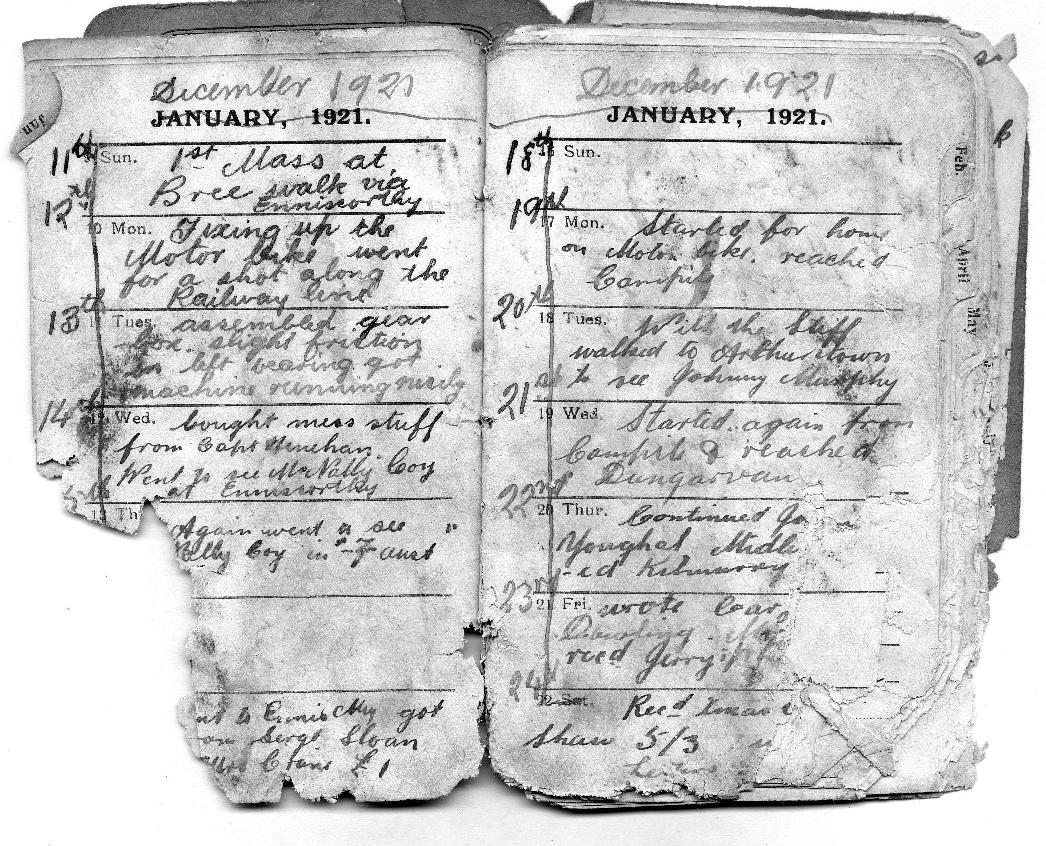 December 1921
JANUARY, 1921.
11th Sun. 1st Mass at
Bree walk via
Enniscorthy
12th
10 Mon. Fixing up the
Motor bike went
for a shot along the
Railway line
13th Tues. assembled gear
box. slight friction
in left bearing got
machine running nicely
14th Wed. bought mess stuff
from Capt
Went to see McNally Coy
at Enniscorthy
13 Th
Again went to see "
Nelly Coy in "Faust
nt to Enniscthy got
Sergt Sloan
Mrs Crane £1
Jan
December 1921
JANUARY, 1921.
18th Sun.
19th
17 Mon. Started for home
on Motor bike. reached
Campile
20th
18 Tues. With the Stiff
walked to Arthurstown
to see Johnny Murphy
21st
19 Wed. Started again from
Campile & reached
Dungarvan
22nd
20 Thur. Continued
Youghal, Midle
23rd
21 Fri. wrote
rced Jerry's
24th
22 Sat. Recd Xmas
Shaw 5/3
Feb.
April
May